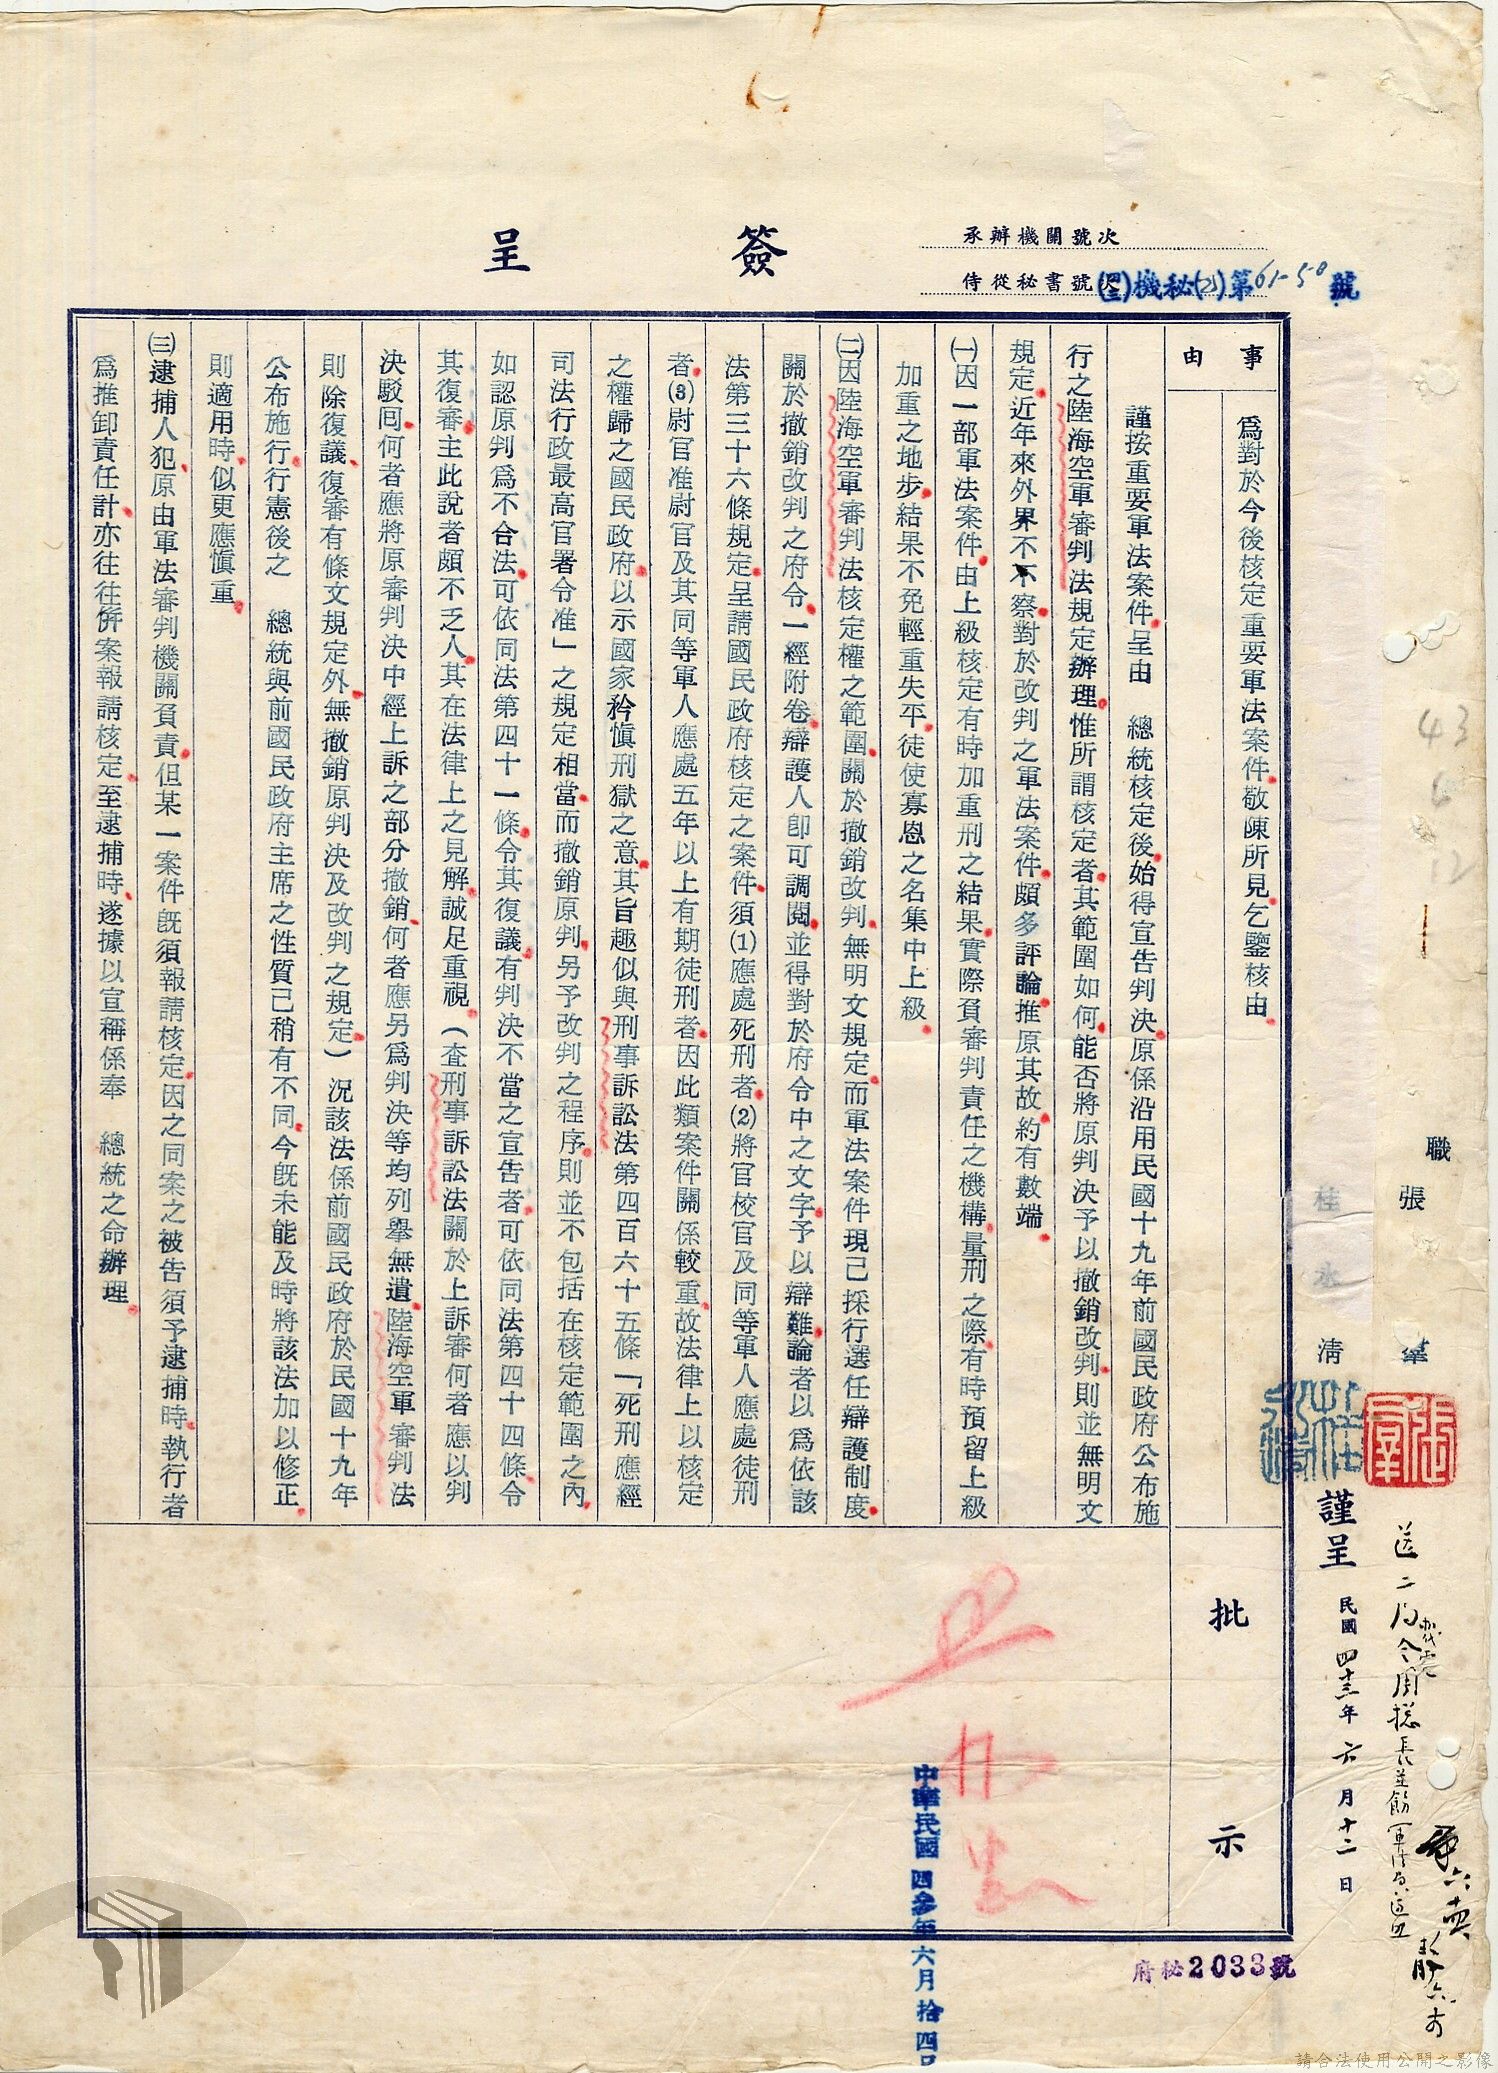 簽呈
承辦機關號次
侍從秘書號次(四三)機秘(乙)第61-50號
事由
為對於今後核定重要軍法案件敬陳所見乞鑒核由
謹按重要軍法案件呈由　總統核定後始得宣告判決原係沿用民國十九年前國民政府公布施
行之陸海空軍審判法規定辦理惟所謂核定者其範圍如何能否將原判決予以撤銷改判則並無明文
規定近年來外界不不察對於改判之軍法案件頗多評論推原其故約有數端
㈠因一部軍法案件由上級核定有時加重刑之結果實際負審判責任之機構量刑之際有時預留上級
加重之地步結果不免輕重失平徒使寡恩之名集中上級
㈡因陸海空軍審判法核定權之範圍關於撤銷改判無明文規定而軍法案件現已採行選任辯護制度
關於撤銷改判之府令一經附卷辯護人即可調閱並得對於府令中之文字予以辯難論者以為依該
法第三十六條規定呈請國民政府核定之案件須(1)應處死刑者(2)將官校官及同等軍人應處徒刑
者(3)尉官准尉官及其同等軍人應處五年以上有期徒刑者因此類案件關係較重故法律上以核定
之權歸之國民政府以示國家矜慎刑獄之意其旨趣似與刑事訴訟法第四百六十五條「死刑應經
司法行政最高官署令准」之規定相當而撤銷原判另予改判之程序則並不包括在核定範圍之內
如認原判為不合法可依同法第四十一條令其復議有判決不當之宣告者可依同法第四十四條令
其復審主此說者頗不乏人其在法律上之見解誠足重視(查刑事訴訟法關於上訴審何者應以判
決駁回何者應將原審判決中經上訴之部分撤銷何者應另為判決等均列舉無遺陸海空軍審判法
則除復議復審有條文規定外無撤銷原判決及改判之規定)況該法係前國民政府於民國十九年
公布施行行憲後之　總統與前國民政府主席之性質已稍有不同今既未能及時將該法加以修正
則適用時似更應慎重
㈢逮捕人犯原由軍法審判機關負責但某一案件既須報請核定因之同案之被告須予逮捕時執行者
為推卸責任計亦往往併案報請核定至逮捕時遂據以宣稱係奉　總統之命辦理
批示
中華民國四參年六月拾四日
職張羣
桂永清
謹呈
民國四十三年六月十二日
府秘2033號
43
6
12
請合法使用公開之影像